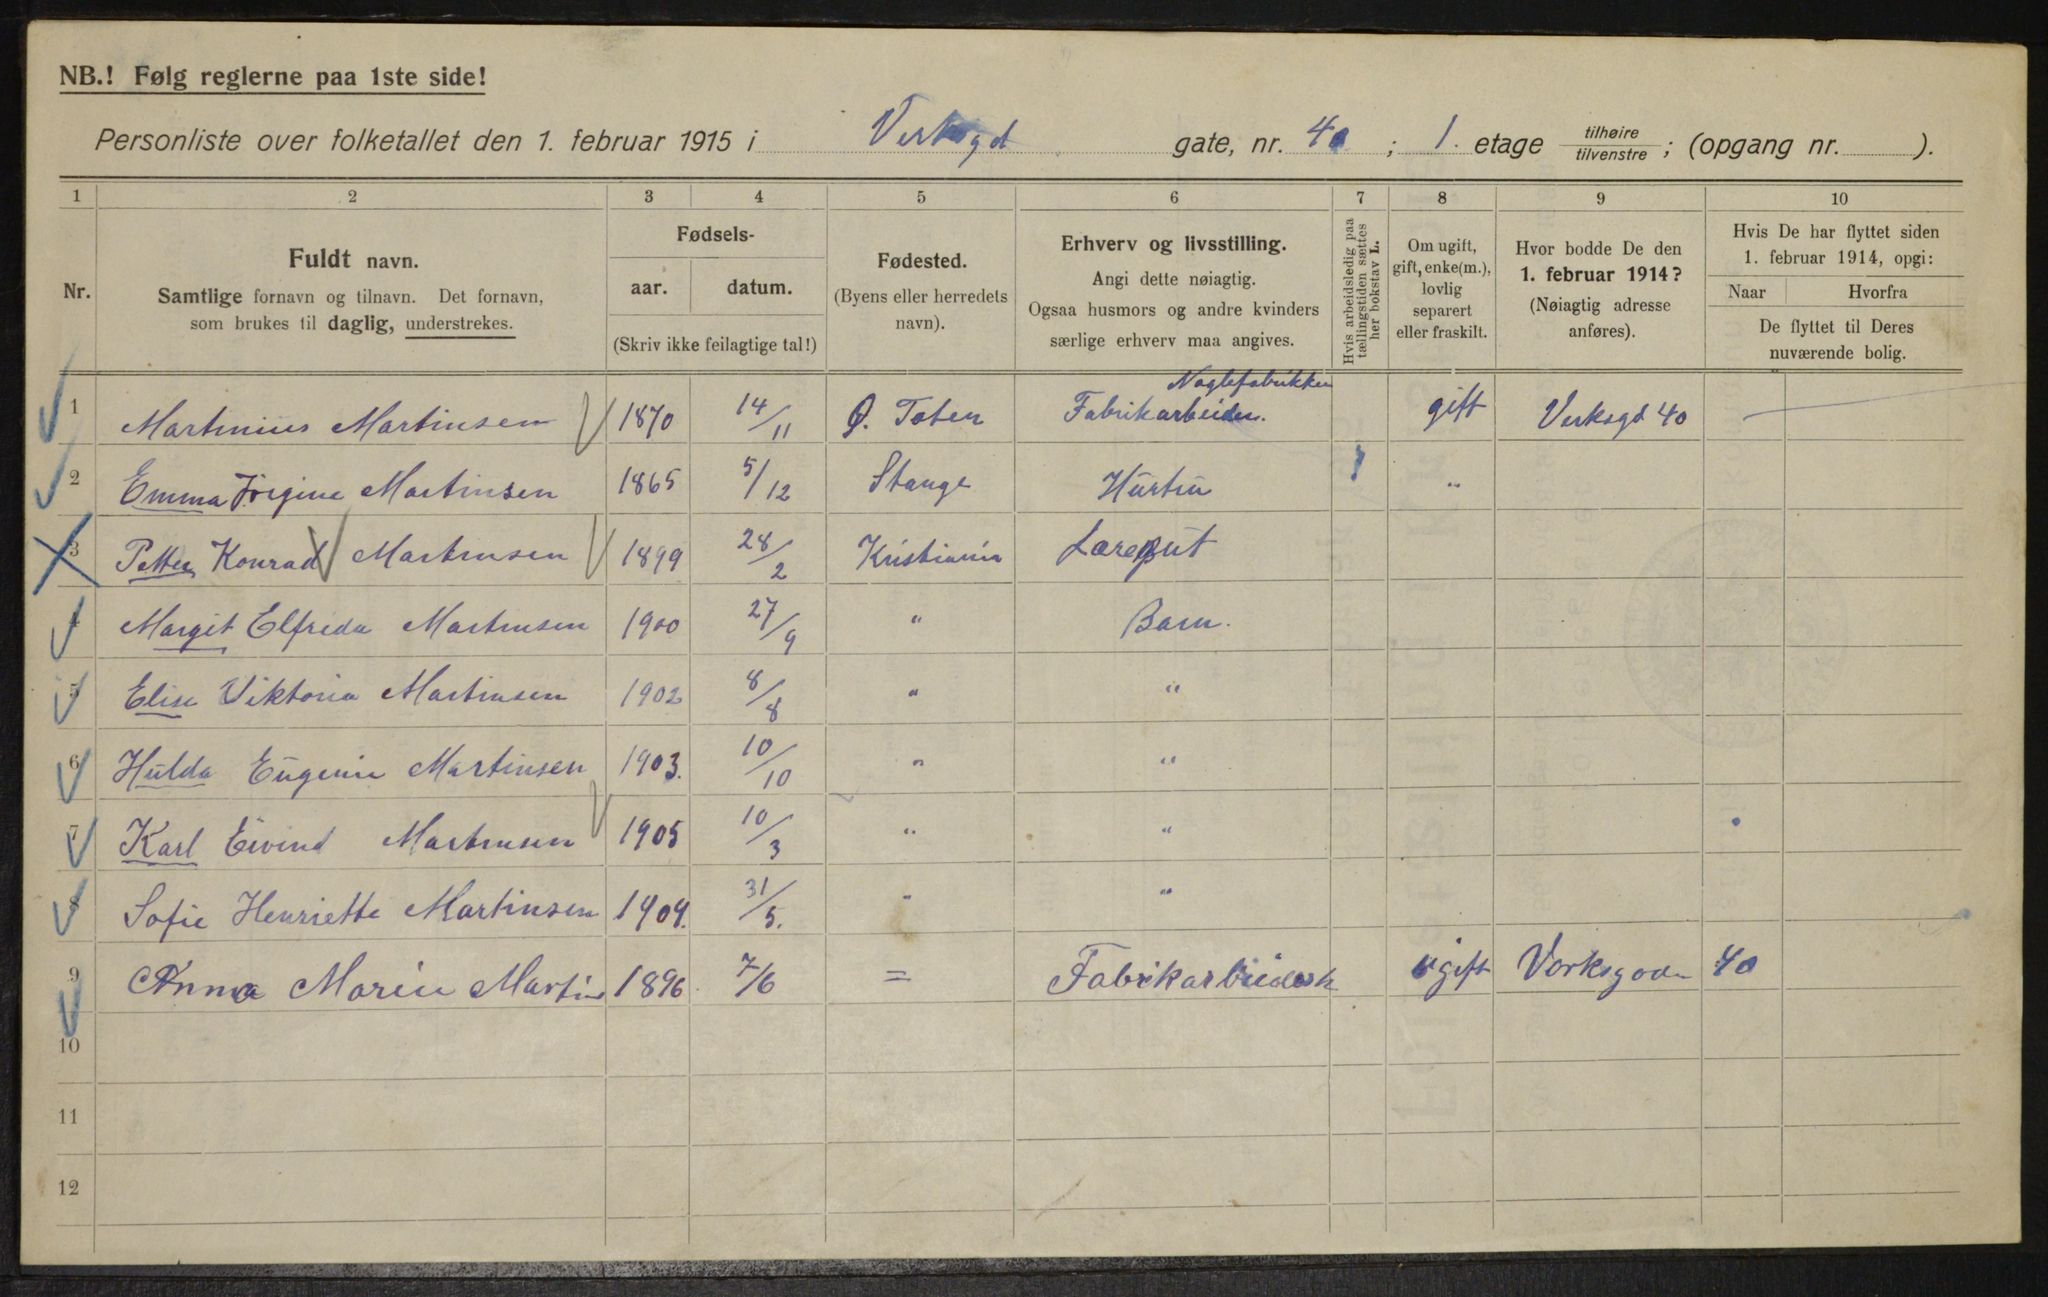 NB.! Følg reglerne paa 1ste side!
Personliste over folketallet den 1. februar 1915 i Verksgd gate, nr. 40 ; 1. etage tilhøire tilvenstre ; (opgang nr. ).
1 2 3 4 5 6 7 8 9 10
Nr.
Fuldt navn.
Samtlige fornavn og tilnavn. Det fornavn,
som brukes til daglig, understrekes.
Fødsels-
aar. datum.
(Skriv ikke feilagtige tal!)
Fødested.
(Byens eller herredets
navn).
Erhverv og livsstilling.
Angi dette nøiagtig.
Ogsaa husmors og andre kvinders
særlige erhverv maa angives.
Hvis arbeidsledig paa
tællingstiden sættes
her bokstav L.
Om ugift,
gift, enke(m.),
lovlig
separert
eller fraskilt.
Hvor bodde De den
1. februar 1914?
(Nøiagtig adresse
anføres).
Hvis De har flyttet siden
1. februar 1914, opgi:
Naar Hvorfra
De flyttet til Deres
nuværende bolig.
Naglefabrikken
1 Martinius Martinsen 1870 14/11 Ø. Toten Fabrikarbeider. gift Verksgd 40 —
2 Emma Jørgine Martinsen 1865 5/12 Stange Hustru "
3 Petter Konrad Martinsen 1899 28/2 Kristiania Læregut
4 Margit Elfrida Martinsen 1900 27/9 " Barn.
5 Elise Viktoria Martinsen 1902 8/8 " "
6 Hulda Eugenie Martinsen 1903. 10/10 " "
7 Karl Eivind Martinsen 1905 10/3 " "
8 Sofie Henriette Martinsen 1909. 31/5. " "
9 Anna Marie Martins 1896 7/6 = Fabrikarbeidersk ugift Verksgaden 40
10
11
12